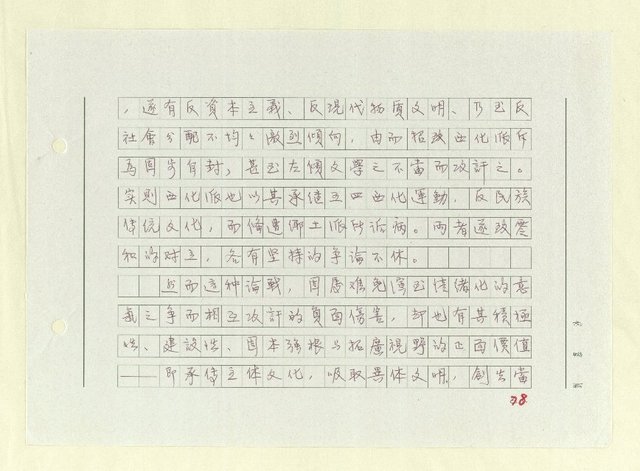 ，遂有反資本主義、反現代物质文明、乃至反
社會分配不均之激烈傾向，由而招致西化派斥
為固步自封，甚至左傾文學之不當而攻訐之。
实則西化派也以其承继五四西化運動，反民族
傳統文化，而備遭鄉土派所诟病。兩者遂改
和的对立，各有坚持的争論不休。
然而這种論戰，固愿难免演至情绪化的意
氣之争而相互攻訐的負面傷害，却也有其積極
性、建設性、固本強根与拓廣視野的正面價值
——即承傳主体文化，吸取異体文明，創出當
78